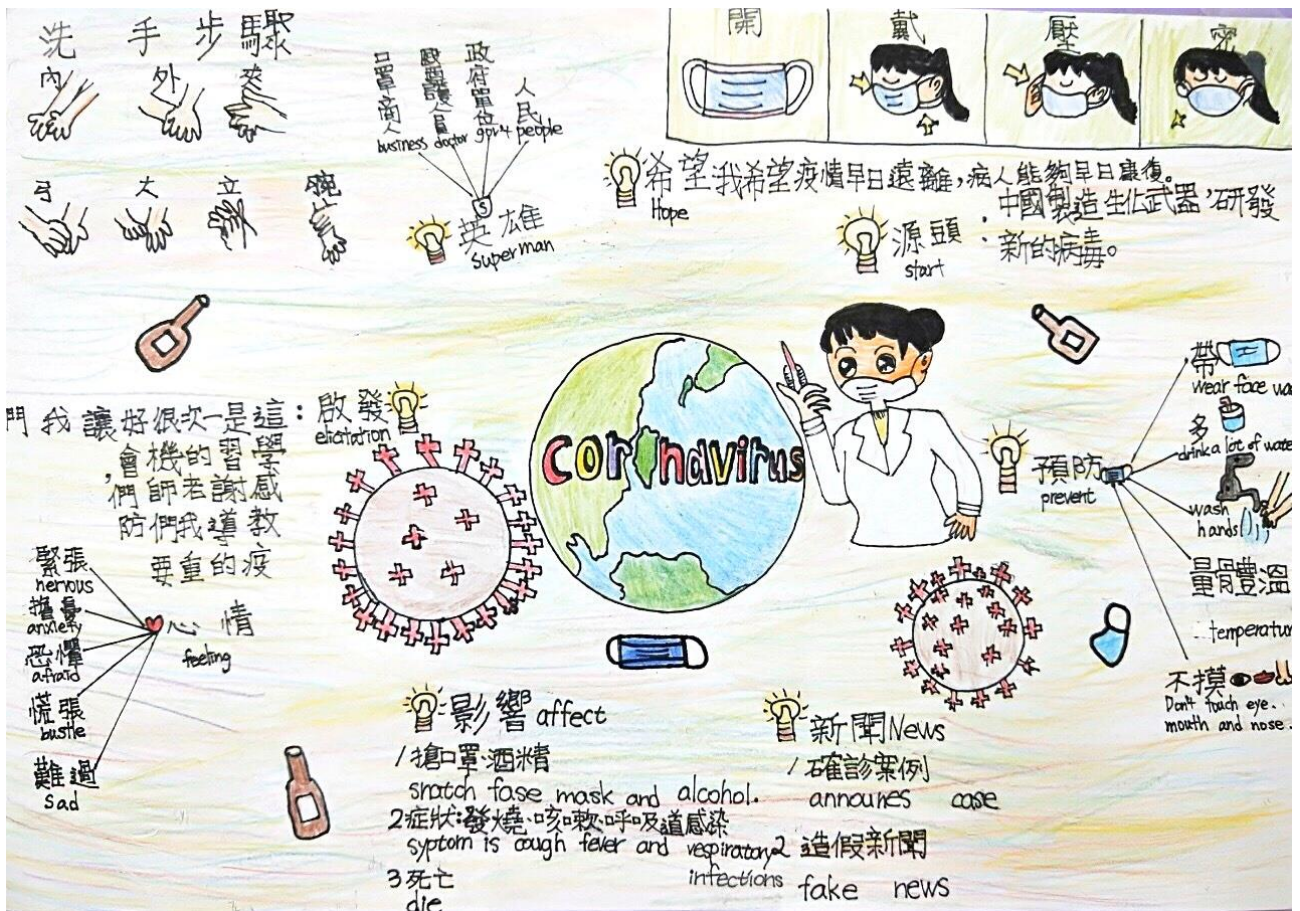 洗手步驟
內 外 夾
弓 大 立 腕
口罩商人
business
醫護人員
doctor
政府單位
gov't
人民
people
S
英雄
superman
開 戴 壓 密
希望:我希望疫情早日遠離,病人能夠早日康復。
Hope
源頭:中國製造生化武器,研發
新的病毒。
start
coronavirus
啟發:這是一次很好讓我們
elicitation
學習的機會,
感謝老師們
教導我們防
疫的重要
心情
feeling
緊張
nervous
擔憂
anxiety
恐懼
afraid
慌張
bustle
難過
sad
預防
prevent
帶
wear face
多
drink a lot of water
wash
hands
量體溫
temperatur
不摸
Don't touch eye.
mouth and nose.
影響 affect
1 搶口罩、酒精
snatch fase mask and alcohol.
2 症狀:發燒、咳嗽、呼吸道感染
syptom is cough fever and respiratory
infections
3 死亡
die
新聞 News
1 確診案例
announes case
2 造假新聞
fake news